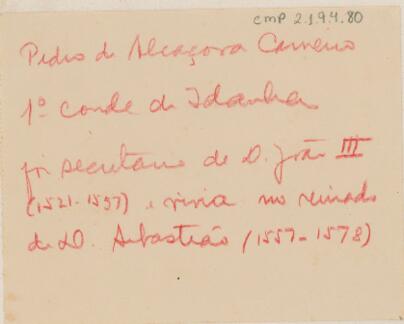 CMP 2.194.80
Pedro de Alcaçova Carneiro
1º conde de Idanha
foi secretario de D. João III
(1521-1557) e vivia no reinado
de D. Sebastião (1557-1578)